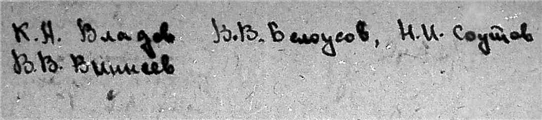 К.Н. Владов В.В. Белоусов, Н.И. Соутов
В.В. Виннеев